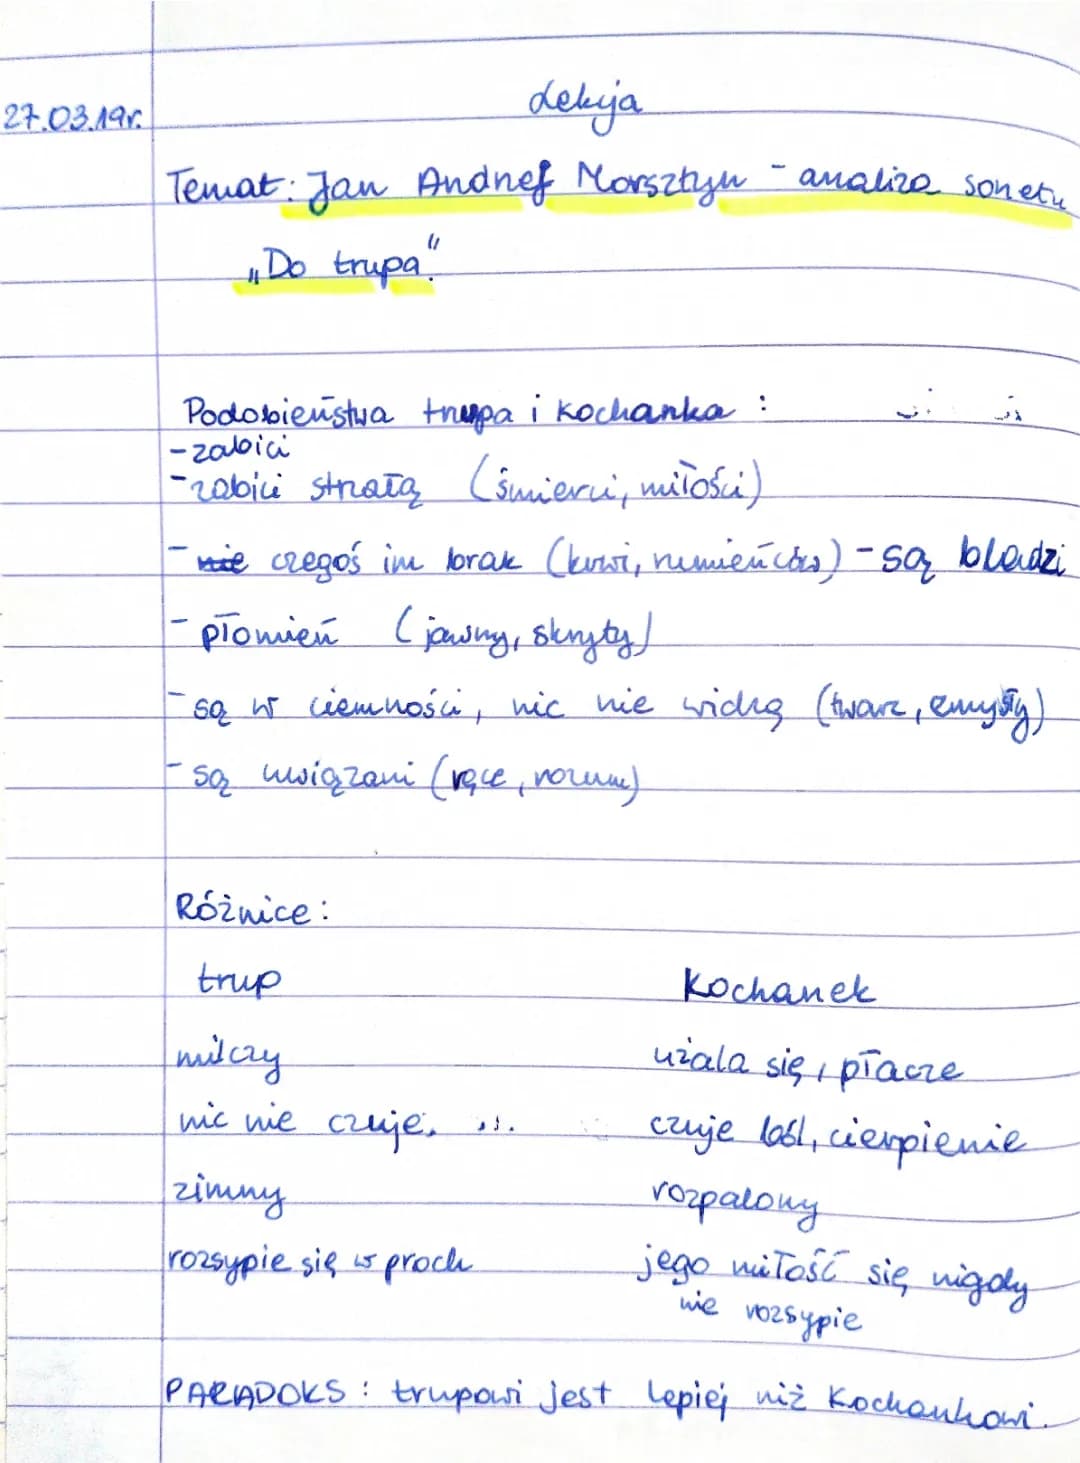 27.03.19r.
Lekcja
Temat: Jan Andrzej Morsztyn - analiza sonetu
„Do trupa."
Podobieństwa trupa i kochanka :
- zabici
- zabici strzałą (śmierci, miłości)
- nie czegoś im brak (krwi, rumieńców) - są bladzi
- płomień (jawny, skryty)
- są w ciemności, nic nie widzą (twarz, zmysły)
- są związani (ręce, rozum)
Różnice :
trup kochanek
milczy użala się, płacze
nic nie czuje. czuje ból, cierpienie
zimny rozpalony
rozsypie się w proch jego miłość się nigdy
nie rozsypie
PARADOKS : trupowi jest lepiej niż kochankowi.